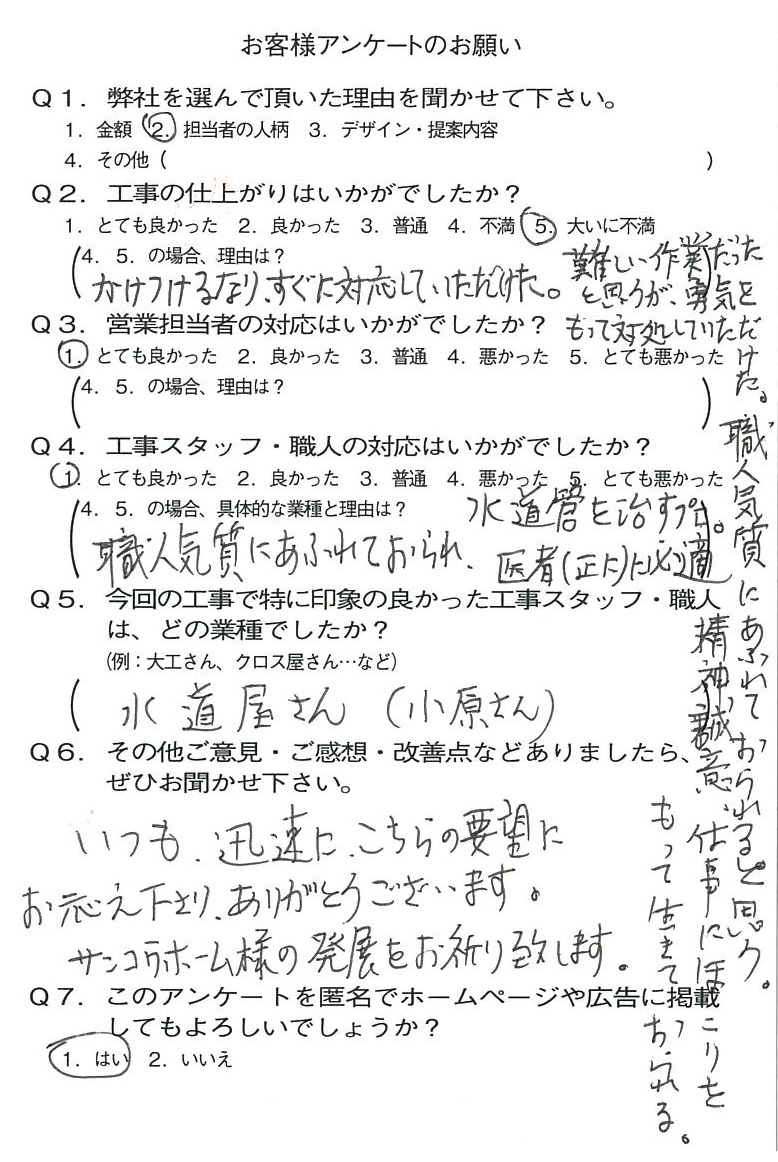 お客様アンケートのお願い
Q1．弊社を選んで頂いた理由を聞かせて下さい。
1．金額 2．担当者の人柄 3．デザイン・提案内容
4．その他（ ）
Q2．工事の仕上がりはいかがでしたか？
1．とても良かった 2．良かった 3．普通 4．不満 5．大いに不満
（4．5．の場合、理由は？
かけつけるなり、すぐに対応していただけた。
難しい作業だった
と思うが、勇気を
もって対処していただ
けた。
職人気質にあふれておられると思う。
Q3．営業担当者の対応はいかがでしたか？
1．とても良かった 2．良かった 3．普通 4．悪かった 5．とても悪かった
（4．5．の場合、理由は？ ）
Q4．工事スタッフ・職人の対応はいかがでしたか？
1．とても良かった 2．良かった 3．普通 4．悪かった 5．とても悪かった
（4．5．の場合、具体的な業種と理由は？
水道管を治すプロ。
職人気質にあふれておられ、
医者(正に)に必適
精神誠意、仕事にほこりを
もって生きておられる。
Q5．今回の工事で特に印象の良かった工事スタッフ・職人
は、どの業種でしたか？
（例：大工さん、クロス屋さん…など）
（ 水道屋さん （小原さん）
Q6．その他ご意見・ご感想・改善点などありましたら、
ぜひお聞かせ下さい。
いつも、迅速に、こちらの要望に
お応え下さり、ありがとうございます。
サンコウホーム様の発展をお祈り致します。
Q7．このアンケートを匿名でホームページや広告に掲載
してもよろしいでしょうか？
1．はい 2．いいえ